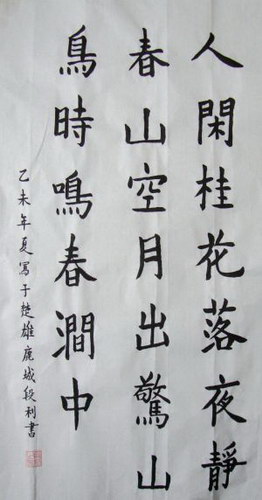 人閑桂花落夜靜
春山空月出驚山
鳥時鳴春澗中
乙未年夏寫于楚雄鹿城段利書